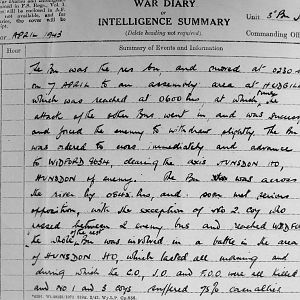 WAR DIARY
or
INTELLIGENCE SUMMARY
(Delete heading not required).
Unit 5 Bn
Commanding Off
in F.S. Regs., Vol. I
be enclosed in A.F.
not available, and for
The cover will
APRIL 1943
Hour
Summary of Events and Information
The Bn was the res Bn, and moved at 0230
on 7 APRIL to an assembly area at
which was reached at 0600 hrs, at which the
attack of the other Bns went in and was success
and forced the enemy to withdraw slightly. The Bn
was ordered to move immediately and advance
to WIDFORD 9034, clearing the axis HUNSDON HO,
HUNSDON of enemy. The Bn was across
the river by 0645 hrs, and soon met serious
opposition, with the exception of No 2 coy who
passed between 2 enemy bns and reached WIDFORD
the whole Bn was involved in a battle in the area
of HUNSDON HO, which lasted all morning and
during which the C.O., I.O. and F.O.O. were all killed
and No 1 and 3 coys suffered 75% casualties